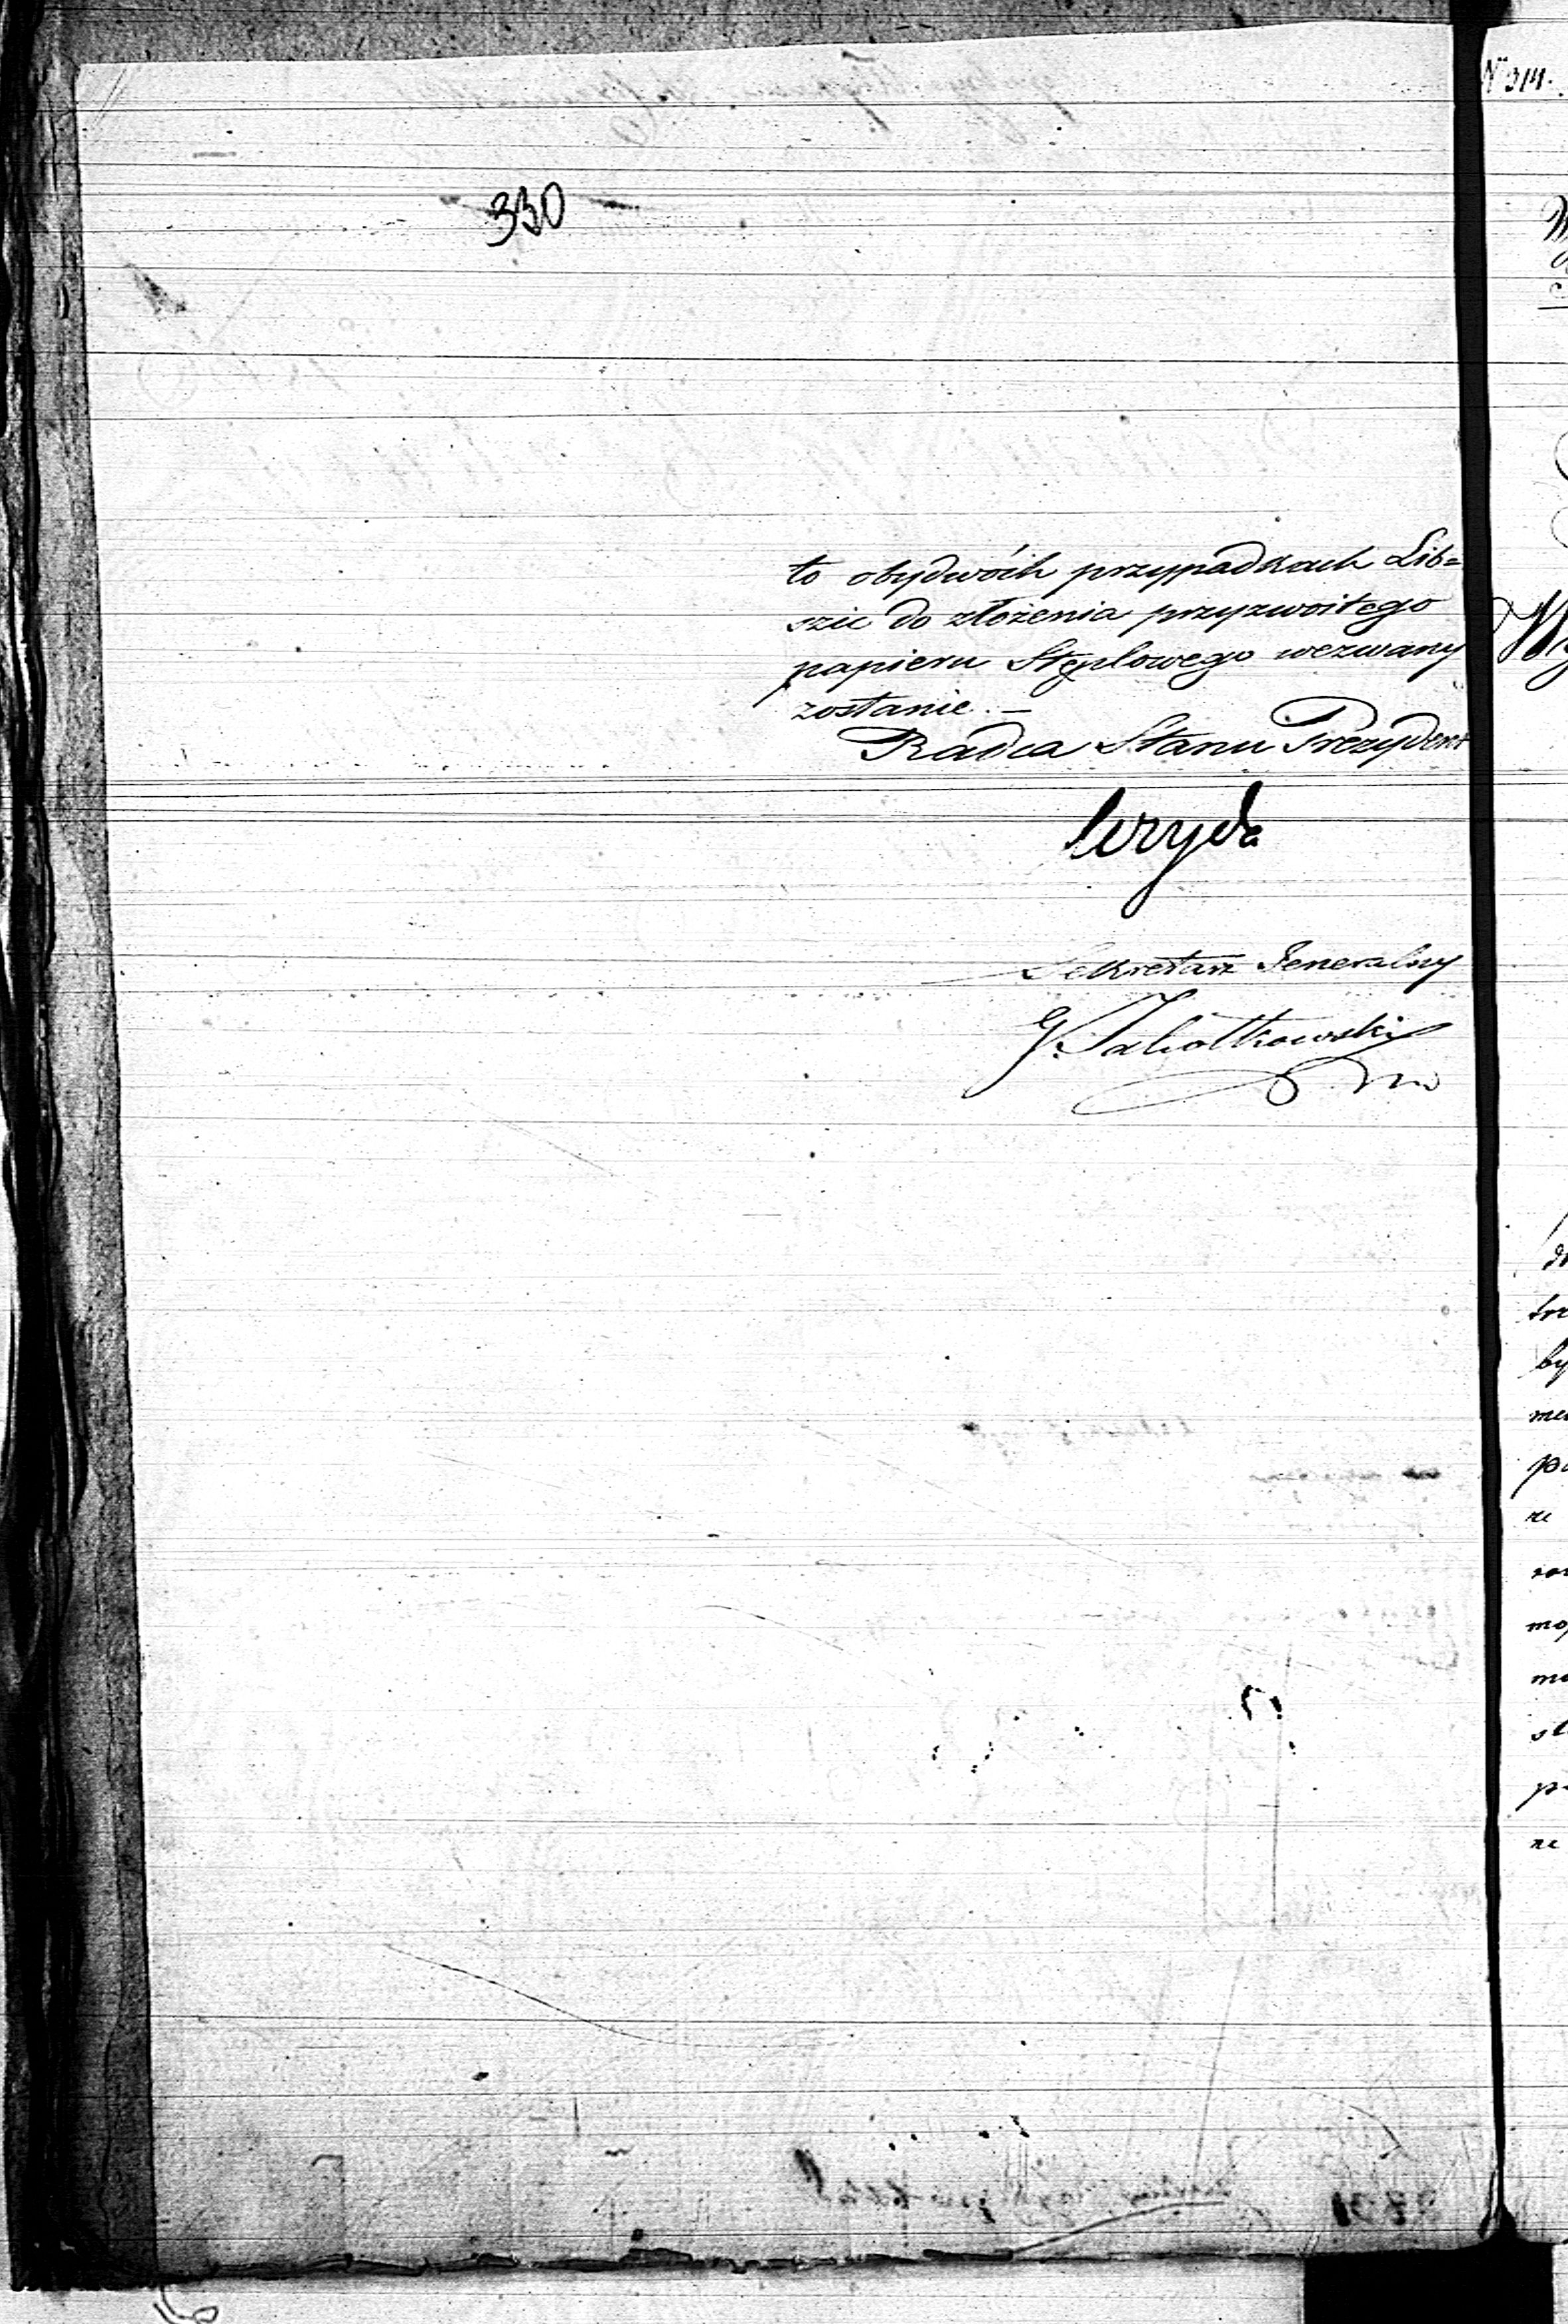 330
to obydwóch przypadkach Lib=
szic do złożenia przyzwoitego
papieru Stęplowego wezwany
zostanie. —
Radca Stanu Prezydent
Sekretarz Generalny
N° 314.